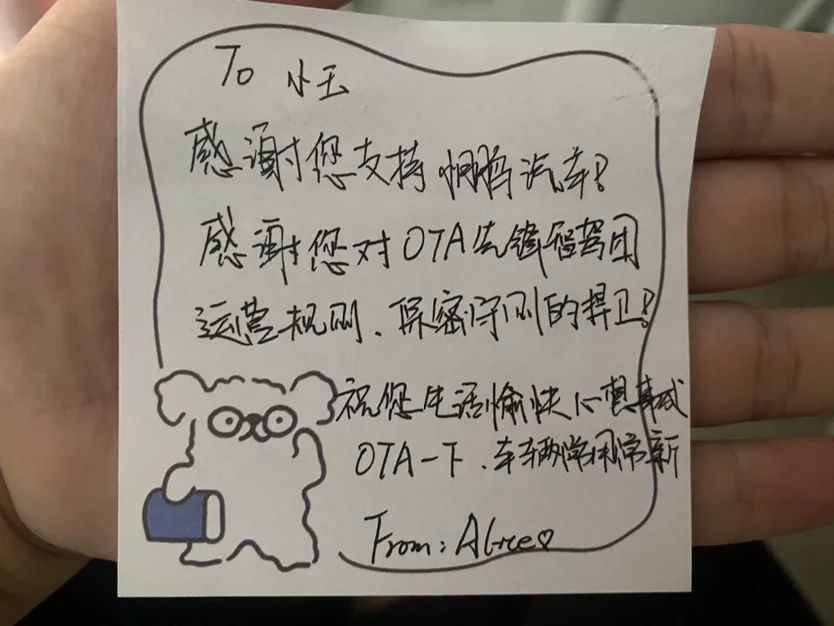 To 小玉
感谢您支持 小鹏汽车!
感谢您对OTA先锋智驾团
运营规则、保密守则的捍卫!
祝您生活愉快心想事成
OTA一下、车辆常用常新
From: Alice♡